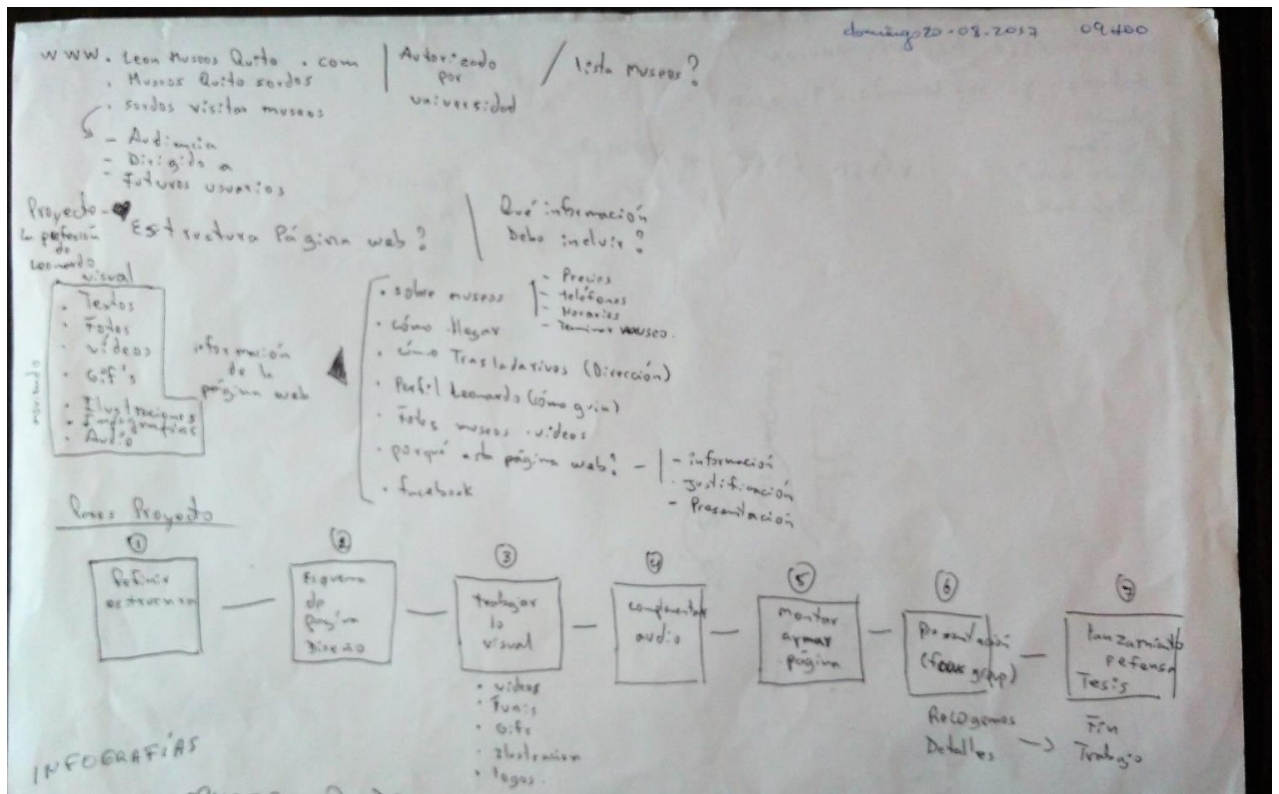 domingo 20.08.2017 09H00
www. Leon Museos Quito . com
. Museos Quito sordos
. sordos visitar museos
Autorizado
por
universidad
/ lista museos?
- Audiencia
- Dirigido a
- Futuros usuarios
Proyecto -
La profesión
de
Leonardo
Estructura Página web?
Qué información
Debo incluir?
visual
. Textos
. Fotos
. vídeos
. Gif's
. Ilustraciones
. Infografías
. Audio
información
de la
página web
. sobre museos
- Precios
- teléfonos
- Horarios
- museo.
. cómo llegar
. cómo (Dirección)
. Perfil Leonardo (cómo guía)
. Fotos museos . videos
. porqué esta página web? -
- información
. justificación
- Presentación
. facebook
Pasos Proyecto
①
Definir
estructura
②
Esquema
de
pagina
Diseño
③
trabajar
lo
visual
. videos
.
. Gifs
. Ilustracion
. logos.
④
complementar
audio
⑤
montar
armar
página
⑥
Presentación
(focus group)
Recogemos
Detalles
→
⑦
lanzamiento
Defensa
Tesis
Fin
Trabajo
INFOGRAFÍAS